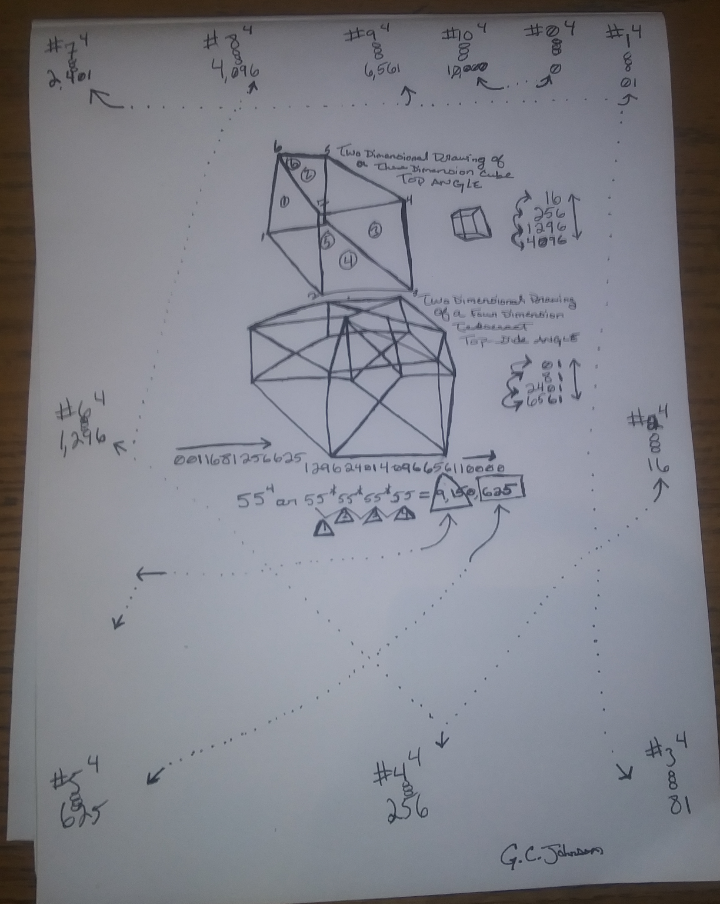 #7⁴
2,401
#8⁴
4,096
#9⁴
6,561
#10⁴
10,000
#0⁴
0
#1⁴
01
6 5
Two Dimensional Drawing of
a Three Dimension Cube
TOP ANGLE
6
2
1
7
4
1
3
5
4
2
3
16
256
1296
4096
Two Dimensional Drawing
Of a Four Dimension
Tesseract
Top Side ANGLE
01
81
2401
6561
#6⁴
1,296
#2⁴
16
0011681256625
129624014096656110000
55⁴ or 55*55*55*55 = 9,150,625
1 2 3 4
#5⁴
625
#4⁴
256
#3⁴
81
G.C. Johnson